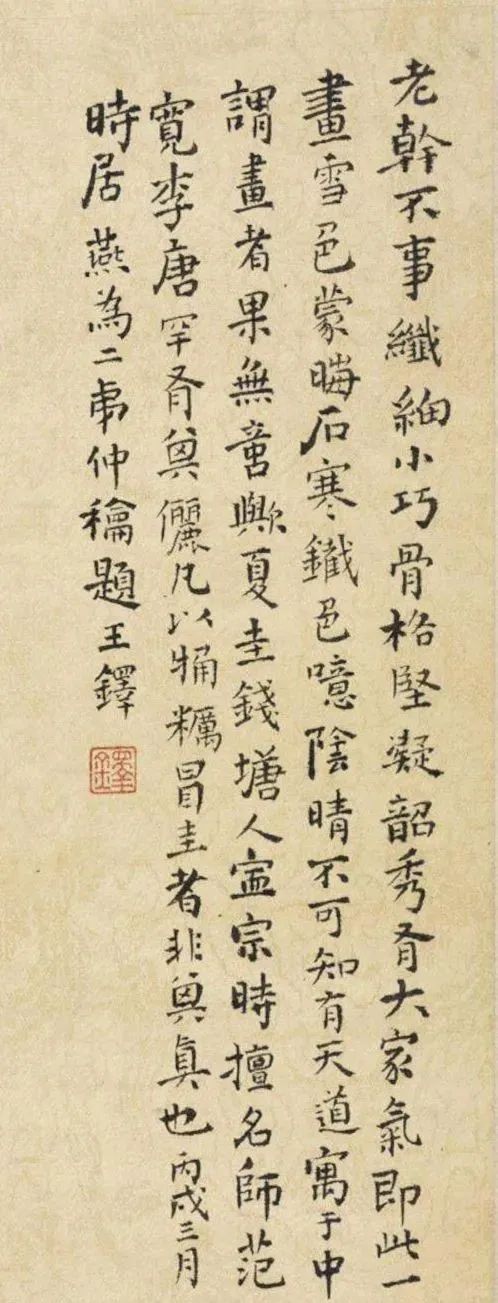 老幹不事纖細小巧骨格堅凝韶秀有大家氣即此一
畫雪色蒙晦石寒鐵色噫陰晴不可知有天道寓于中
謂畫者果無言歟夏圭錢塘人寍宗時擅名師范
寬李唐罕有其儷凡以觕糲冒圭者非其眞也丙戌三月
時居燕為二弟仲龢題王鐸
鐸